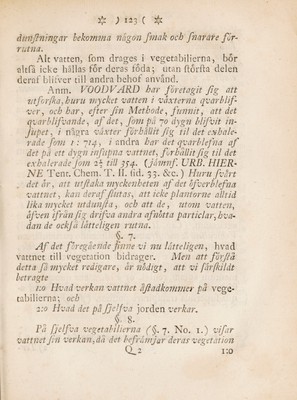 ※ ) 123 ( ※
dunstningar bekomma någon smak och snarare för-
rutna.
Alt vatten, som drages i vegetabilierna, bör
altså icke hållas för deras föda; utan största delen
deraf blifver till andra behof använd.
Anm. VOODVARD har företagit sig att
utforska, huru mycket vatten i växterna qvarblif-
ver, och har, efter sin Methode, funnit, att det
qvarblifvande, af det, som på 70 dygn blifvit in-
supet, i några växter förhållit sig til det exhale-
rade som 1: 714, i andra har det qvarblefna af
det på ett dygn insupna vattnet, förhållit sig til det
exhalerade som 2½ till 354. (jämnf. URB. HIER-
NE Tent. Chem. T. II. tid. 33. &c.) Huru svårt
det är, att utstaka myckenheten af det öfverblefna
vattnet, kan deraf slutas, att icke plantorne alltid
lika mycket utdunsta, och att de, utom vatten,
äfven ifrån sig drifva andra afnötta particlar, hva-
dan de också lätteligen rutna.
§. 7.
Af det föregående finne vi nu lätteligen, hvad
vattnet till vegetation bidrager. Men att förstå
detta så mycket redigare, är nödigt, att vi särskildt
betragte
1:o Hvad verkan vattnet åstadkommer på vege-
tabilierna; och
2:o Hvad det på sjelfva jorden verkar.
§. 8.
På sjelfva vegetabilierna (§. 7. No. 1.) visar
vattnet sin verkan, då det befrämjar deras vegetation
Q 2 1:o